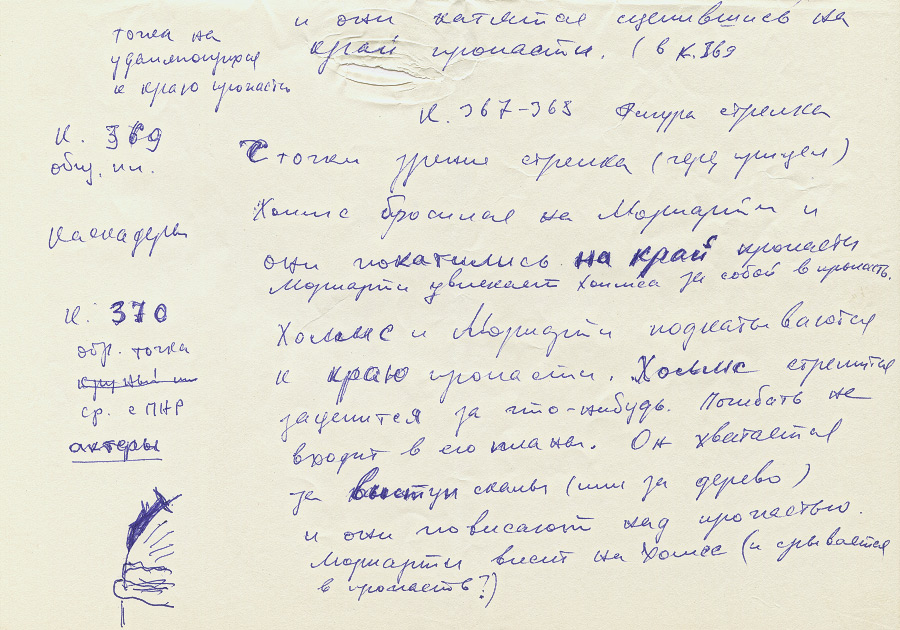 и они катятся сцепившись на
край пропасти. (в к.369
точка на
удаляющихся
к краю пропасти
К. 367-368 Фигура стрелка
К. 369
общ. пл.
С точки зрения стрелка (через прицел)
Каскадеры
Холмс бросился на Мориарти и
они покатились на край пропасти
Мориарти увлекает Холмса за собой в пропасть.
К. 370
обр. точка
крупный пл
ср. с ПНР
актеры
Холмс и Мориарти подкатываются
к краю пропасти. Холмс стремится
зацепится за что-нибудь. Погибать не
входит в его планы. Он хватается
за выступ скалы (или за дерево)
и они повисают над пропастью.
Мориарти висит на Холмсе (и срывается
в пропасть?)